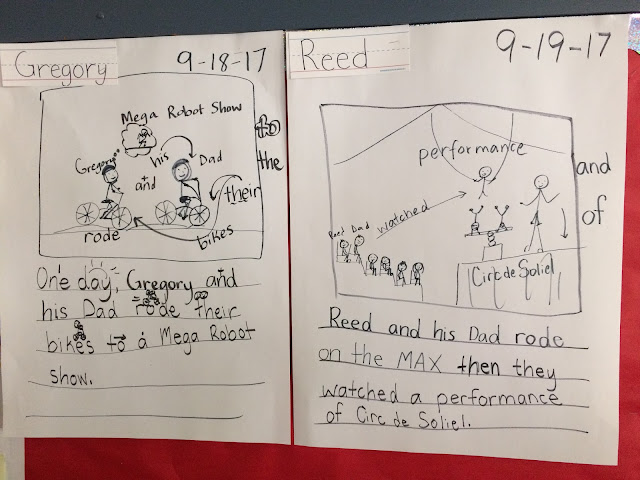 Gregory
9-18-17
Mega Robot Show
to
the
Gregory
his
Dad
and
their
rode
bikes
One day, Gregory and
his Dad rode their
bikes to a Mega Robot
show.
Reed
9-19-17
performance
and
of
Reed Dad
watched
Circ de Soliel
Reed and his Dad rode
on the MAX then they
watched a performance
of Circ de Soliel.